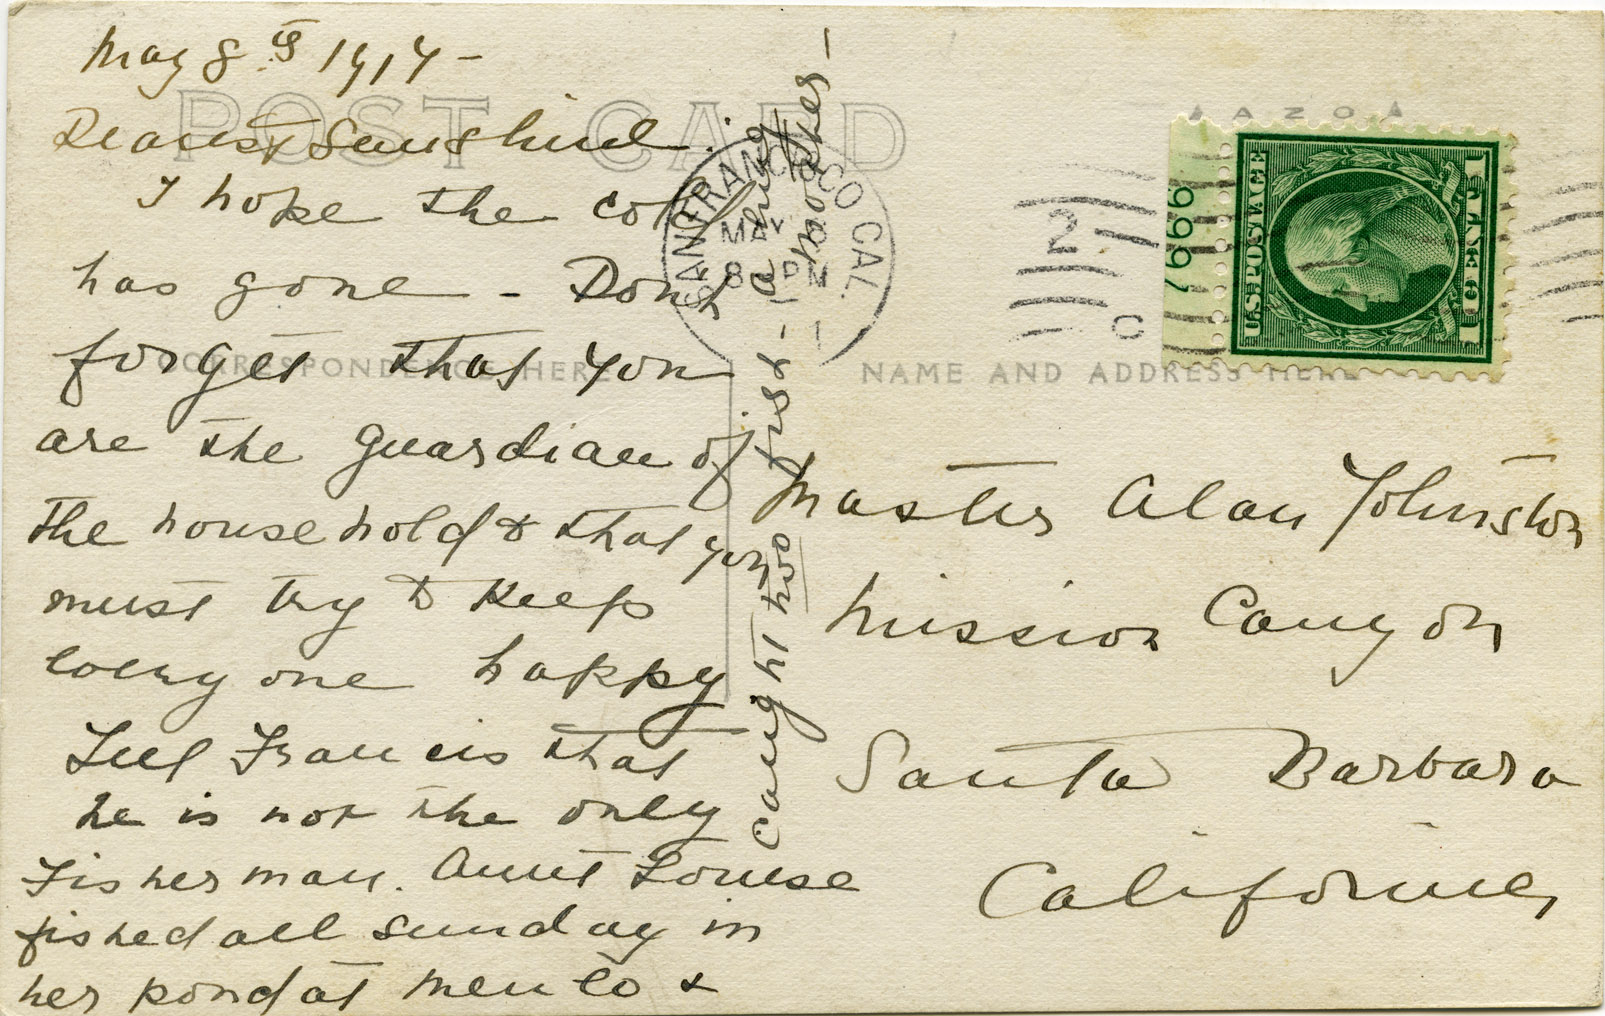 May 8th 1914 -
POST CARD
Dearest Sunshine:
I hope the cold
has gone - Dont
forget that you
are the guardian of
the household & that you
must try to keep
every one happy
Tell Francis that
he is not the only
Fisherman. Aunt Louise
fished all Sunday in
her pond at Menlo &
caught two fish - a hug
Mother -
CORRESPONDENCE HERE
NAME AND ADDRESS HERE
SAN FRANCISCO CAL.
MAY 8
8 PM
1
2
C
AZOA
7666
U.S. POSTAGE
1 CENT 1
Master Alan Johnston
Mission Canyon
Santa Barbara
California